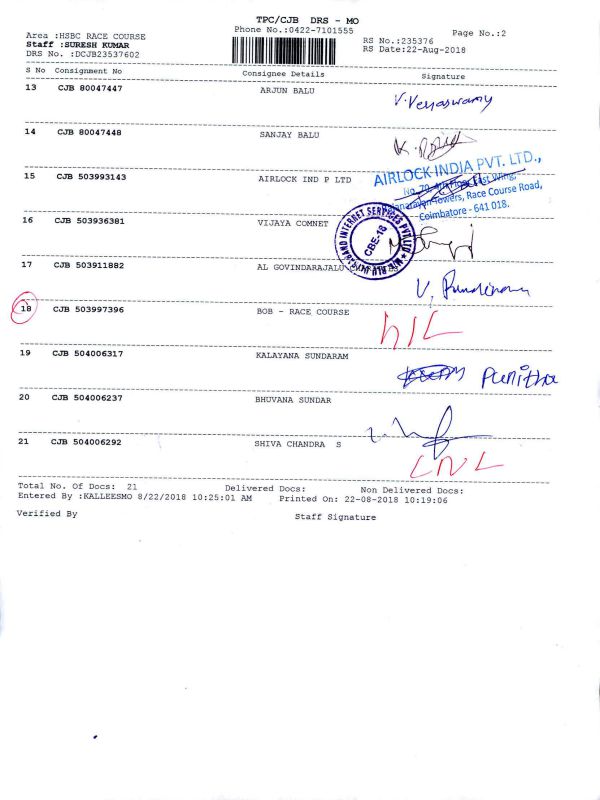 TPC/CJB DRS - MO
Phone No.:0422-7101555
Page No.:2
Area :HSBC RACE COURSE
Staff :SURESH KUMAR
DRS No. :DCJB23537602
RS No.:235376
RS Date:22-Aug-2018
S No Consignment No Consignee Details Signature
13 CJB 80047447 ARJUN BALU
V.Veeraswamy
14 CJB 80047448 SANJAY BALU
15 CJB 503993143 AIRLOCK IND P LTD
AIRLOCK INDIA PVT. LTD.,
No. 70, 4th Floor, East Wing,
Towers, Race Course Road,
Coimbatore - 641 018.
16 CJB 503936381 VIJAYA COMNET
BAND INTERNET SERVICES PVT LTD
CBE-18
17 CJB 503911882 AL GOVINDARAJALU
18 CJB 503997396 BOB - RACE COURSE
19 CJB 504006317 KALAYANA SUNDARAM
Punitha
20 CJB 504006237 BHUVANA SUNDAR
21 CJB 504006292 SHIVA CHANDRA S
Total No. Of Docs: 21 Delivered Docs: Non Delivered Docs:
Entered By :KALLEESMO 8/22/2018 10:25:01 AM Printed On: 22-08-2018 10:19:06
Verified By Staff Signature